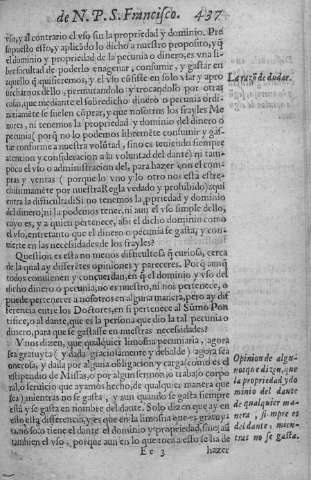 de N. P. S. Francisco. 437
vso, y al contrario el vso sin la propriedad y dominio. Pre
supuesto esto, y aplicãdo lo dicho a nuestro proposito, q̃
el dominio y propriedad de la pecunia o dinero, es vna li-
bre facultad de poderlo enagenar, consumir, y gastar en
aquello q̃ quisieremos, y el vso cõsiste en solo vsar y apro
uecharnos dello, permutandolo y trocandolo por otras
cosas, que mediante el sobredicho dinero o pecunia ordi-
nariamẽte se suelen cõprar, y que nosotros los frayles Me
nores, ni tenemos la propriedad y dominio del dinero o
pecunia (porq̃ no lo podemos libremẽte consumir y gas-
tar conforme a nuestra volũtad, sino es teniendo siempre
atencion y consideracion a la voluntad del dante) ni tam-
poco el vso o administracion del, para hazer con el com-
pras y ventas (porque lo vno y lo otro nos està estre-
chissimamẽte por nuestra Regla vedado y prohibido) aqui
entra la dificultad: Si no tenemos la propriedad y dominio
del dinero, ni la podemos tener, ni aun el vso simple dello,
cuyo es, y a quien pertenece, assi el dicho dominio como
el vso, entretanto que el dinero o pecunia se gasta, y con-
uierte en las necessidades de los frayles?
La razõ de dudar.
Question es esta no menos dificultosa q̃ curiosa, cerca
de la qual ay diferentes opiniones y pareceres. Porq̃ aunq̃
todos conuienen y concuerdan, en q̃ el dominio y vso del
dicho dinero o pecunia, no es nuestro, ni nos pertenece, o
puede pertenecer a nosotros en alguna manera, pero ay dif
ferencia entre los Doctores, en si pertenece al Sũmo Pon
tifice, o al dante, que es la persona que dio la tal pecunia o
dinero, para que se gastasse en nuestras necessidades?
Vnos dizen, que qualquier limosna pecuniaria, agora
sea gratuyta (y dada graciosamente y debalde) agora sea
onerosa, y dada por alguna obligacion y carga (como es el
estipendio de Missas, o por algun sermon o trabajo corpo
ral, o seruicio que ayamos hecho, de qualquier manera que
sea) mientras no se gasta, y aun quando se gasta siempre
està y se gasta en nombre del dante. Solo dizen que ay en
esto esta diferencia, y es que en la limosna que es gratuy-
ta, no solo tiene el dante el dominio y propriedad, sino aũ
tambien el vso, porque aun en lo que toca a esto se ha de
Opinion de algu-
nos que dizen, que
la propriedad y do
minio del dante
de qualquier ma-
nera, siempre es
del dante, mien-
tras no se gasta.
Ee 3 hazer